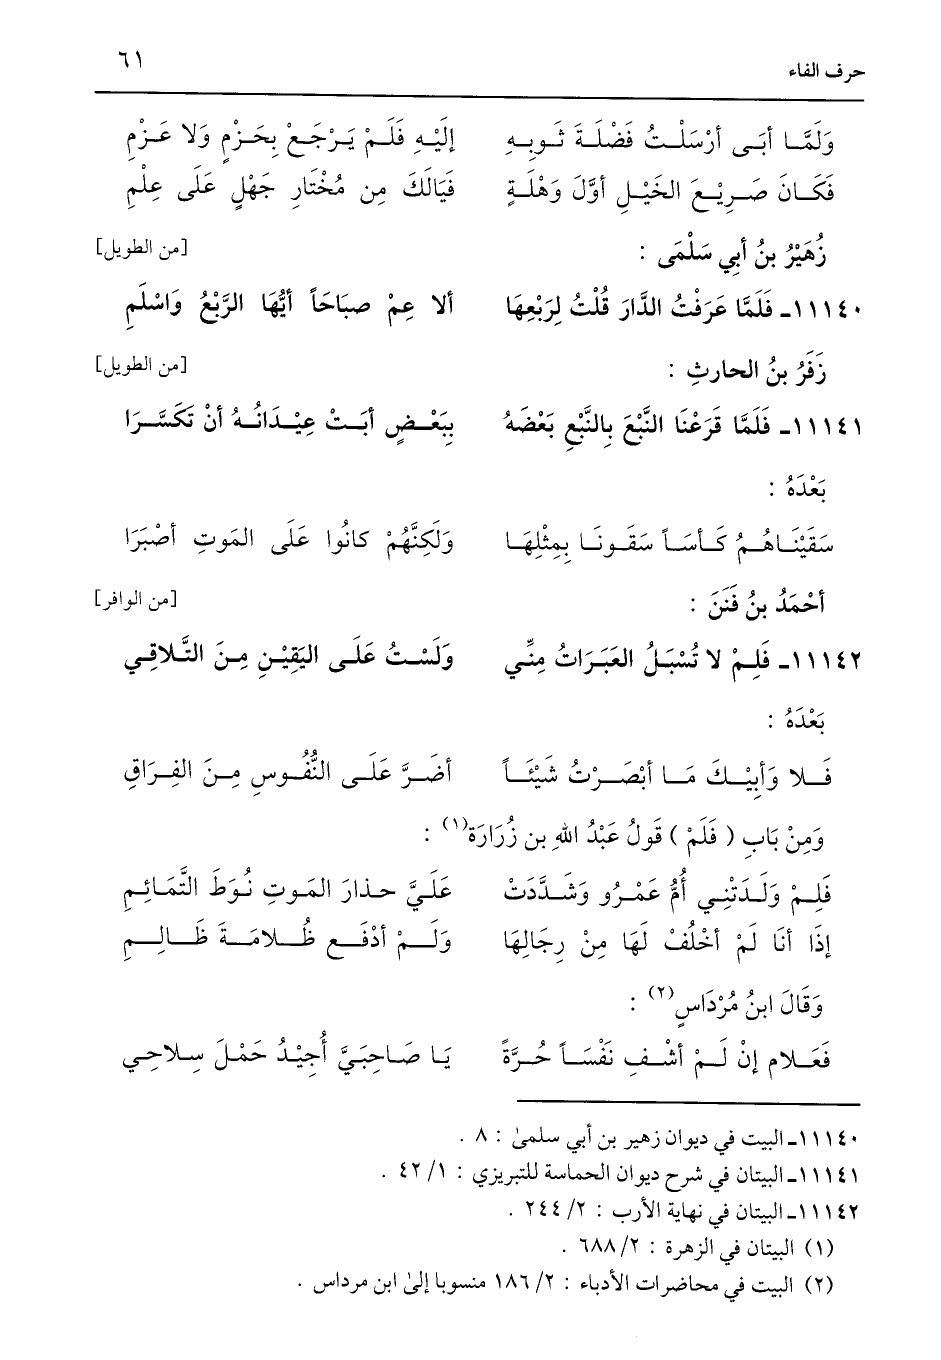 حرف الفاء ٦١
وَلَمَّا أبَى أرْسَلْتُ فَضْلَةَ ثَوبِهِ إلَيْهِ فَلَمْ يَرْجَعْ بِحَزْمٍ وَلا عَزْمِ
فَكَانَ صَرِيْعَ الخَيْلِ أوَّلَ وَهْلَةٍ فَيَالَكَ مِن مُخْتَارِ جَهْلٍ عَلَى عِلْمِ
زُهَيْرُ بنُ أبِي سَلْمَى : [من الطويل]
١١١٤٠ـ فَلَمَّا عَرَفْتُ الدَّارَ قُلْتُ لِرَبْعِهَا ألا عِمْ صبَاحَاً أيُّهَا الرَّبْعُ وَاسْلَمِ
زَفَرُ بنُ الحارثِ : [من الطويل]
١١١٤١ـ فَلَمَّا قَرَعْنَا النَّبْعَ بِالنَّبْعِ بَعْضَهُ بِبَعْضٍ أبَتْ عِيْدَانُهُ أنْ تَكَسَّرَا
بَعْدَهُ :
سَقَيْنَاهُمُ كَأسَاً سَقَونَا بِمِثْلِهَا وَلَكِنَّهُمْ كانُوا عَلَى المَوتِ أصْبَرَا
أحْمَدُ بنُ فَنَنَ : [من الوافر]
١١١٤٢ـ فَلِمْ لا تُسْبَلُ العَبَرَاتُ مِنِّي وَلَسْتُ عَلَى اليَقِيْنِ مِنَ التَّلاقِي
بَعْدَهُ :
فَلا وَأبِيْكَ مَا أبْصَرْتُ شَيْئَاً أضَرَّ عَلَى النُّفُوسِ مِنَ الفِرَاقِ
وَمِنْ بَابِ ( فَلَمْ ) قَولُ عَبْدُ اللهِ بن زُرَارَة(١) :
فَلِمْ وَلَدَتْنِي أُمُّ عَمْرُو وَشَدَّدَتْ عَلَيَّ حذارَ المَوتِ نُوَطَ التَّمَائِمِ
إذَا أنَا لَمْ أخْلُفْ لَهَا مِنْ رِجَالِهَا وَلَمْ أدْفَعِ ظُلامَةَ ظَالِمِ
وَقَالَ ابنُ مُرْدَاسٍ(٢) :
فَعَلام إنْ لَمْ أشْفِ نَفْسَاً حُرَّةً يَا صَاحِبَيَّ أُجِيْدُ حَمْلَ سِلاحِي
١١١٤٠ـ البيت في ديوان زهير بن أبي سلمىٰ : ٨ .
١١١٤١ـ البيتان في شرح ديوان الحماسة للتبريزي : ١/ ٤٢ .
١١١٤٢ـ البيتان في نهاية الأرب : ٢/ ٢٤٤ .
(١) البيتان في الزهرة : ٢/ ٦٨٨ .
(٢) البيت في محاضرات الأدباء : ٢/ ١٨٦ منسوبا إلىٰ ابن مرداس .